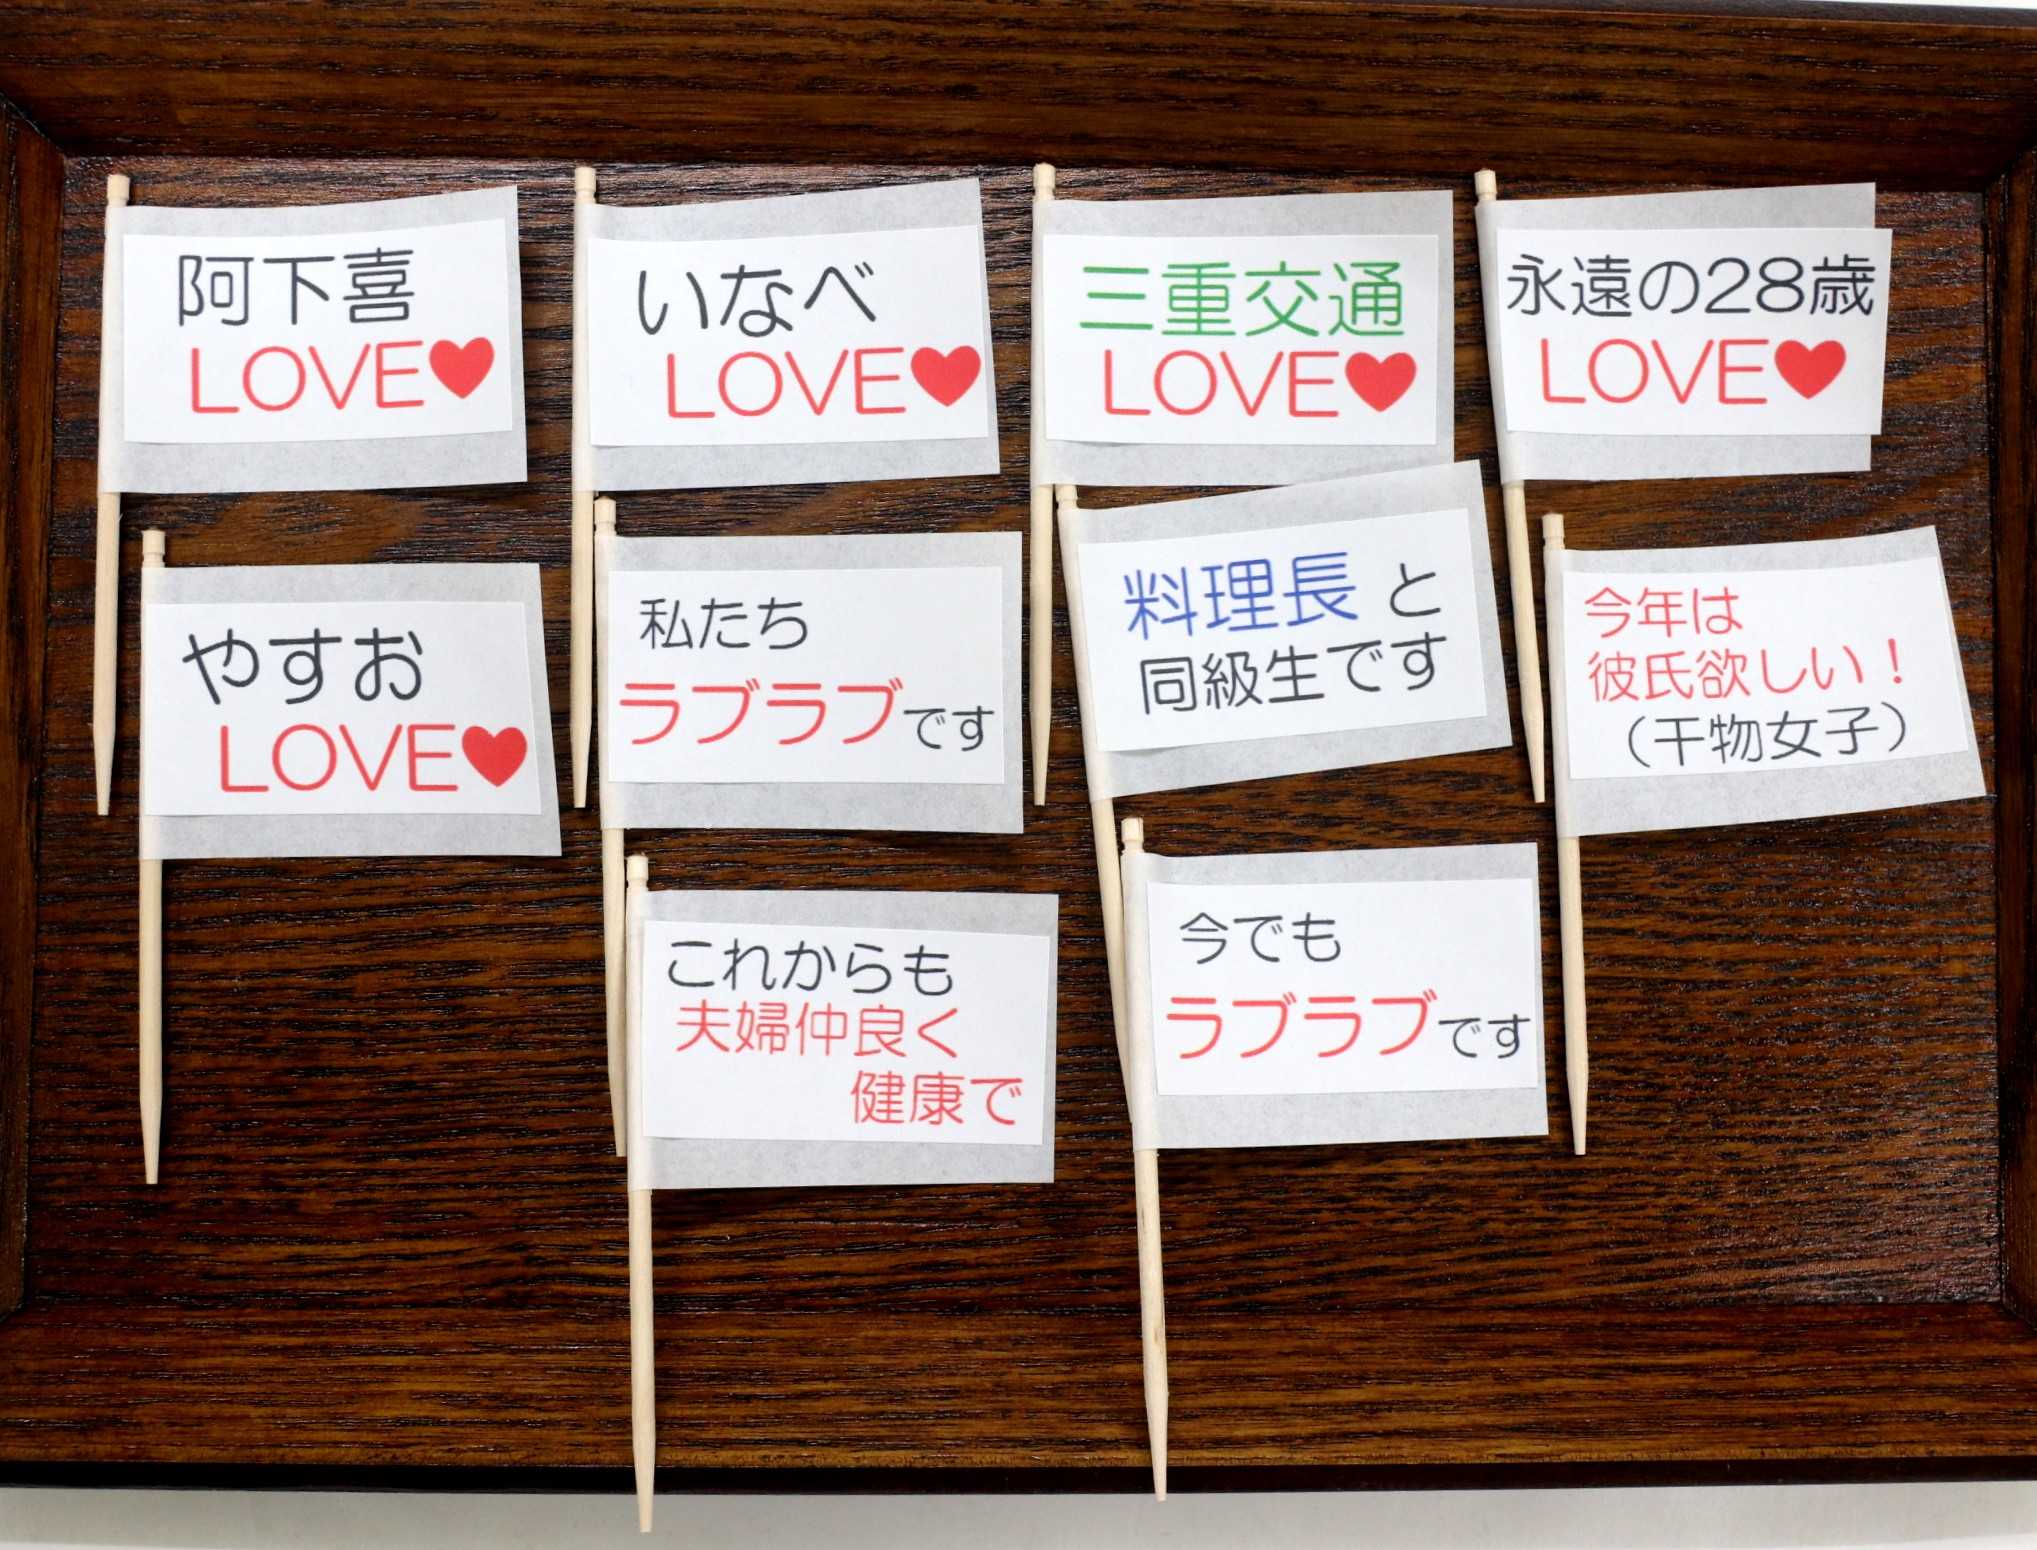 阿下喜
LOVE♥
いなべ
LOVE♥
三重交通
LOVE♥
永遠の28歳
LOVE♥
やすお
LOVE♥
私たち
ラブラブです
料理長と
同級生です
今年は
彼氏欲しい！
（干物女子）
これからも
夫婦仲良く
健康で
今でも
ラブラブです